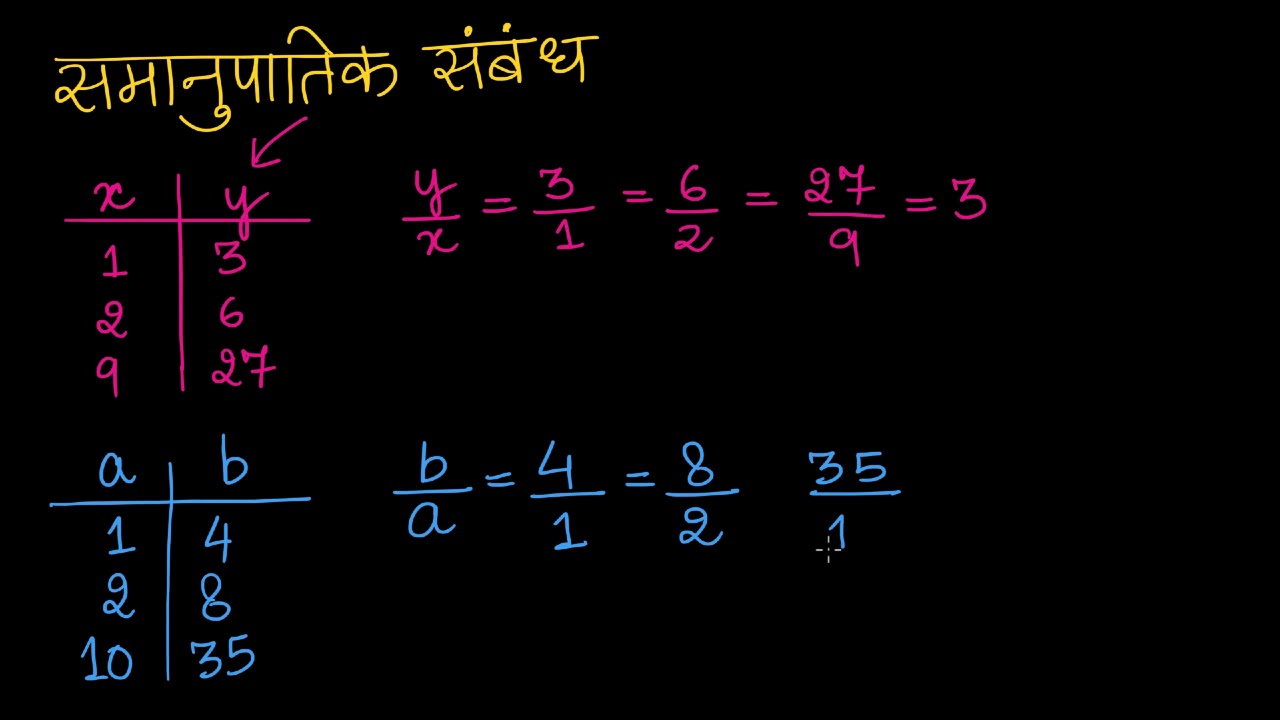 समानुपातिक संबंध
x y
1 3
2 6
9 27
y/x = 3/1 = 6/2 = 27/9 = 3
a b
1 4
2 8
10 35
b/a = 4/1 = 8/2 35/1